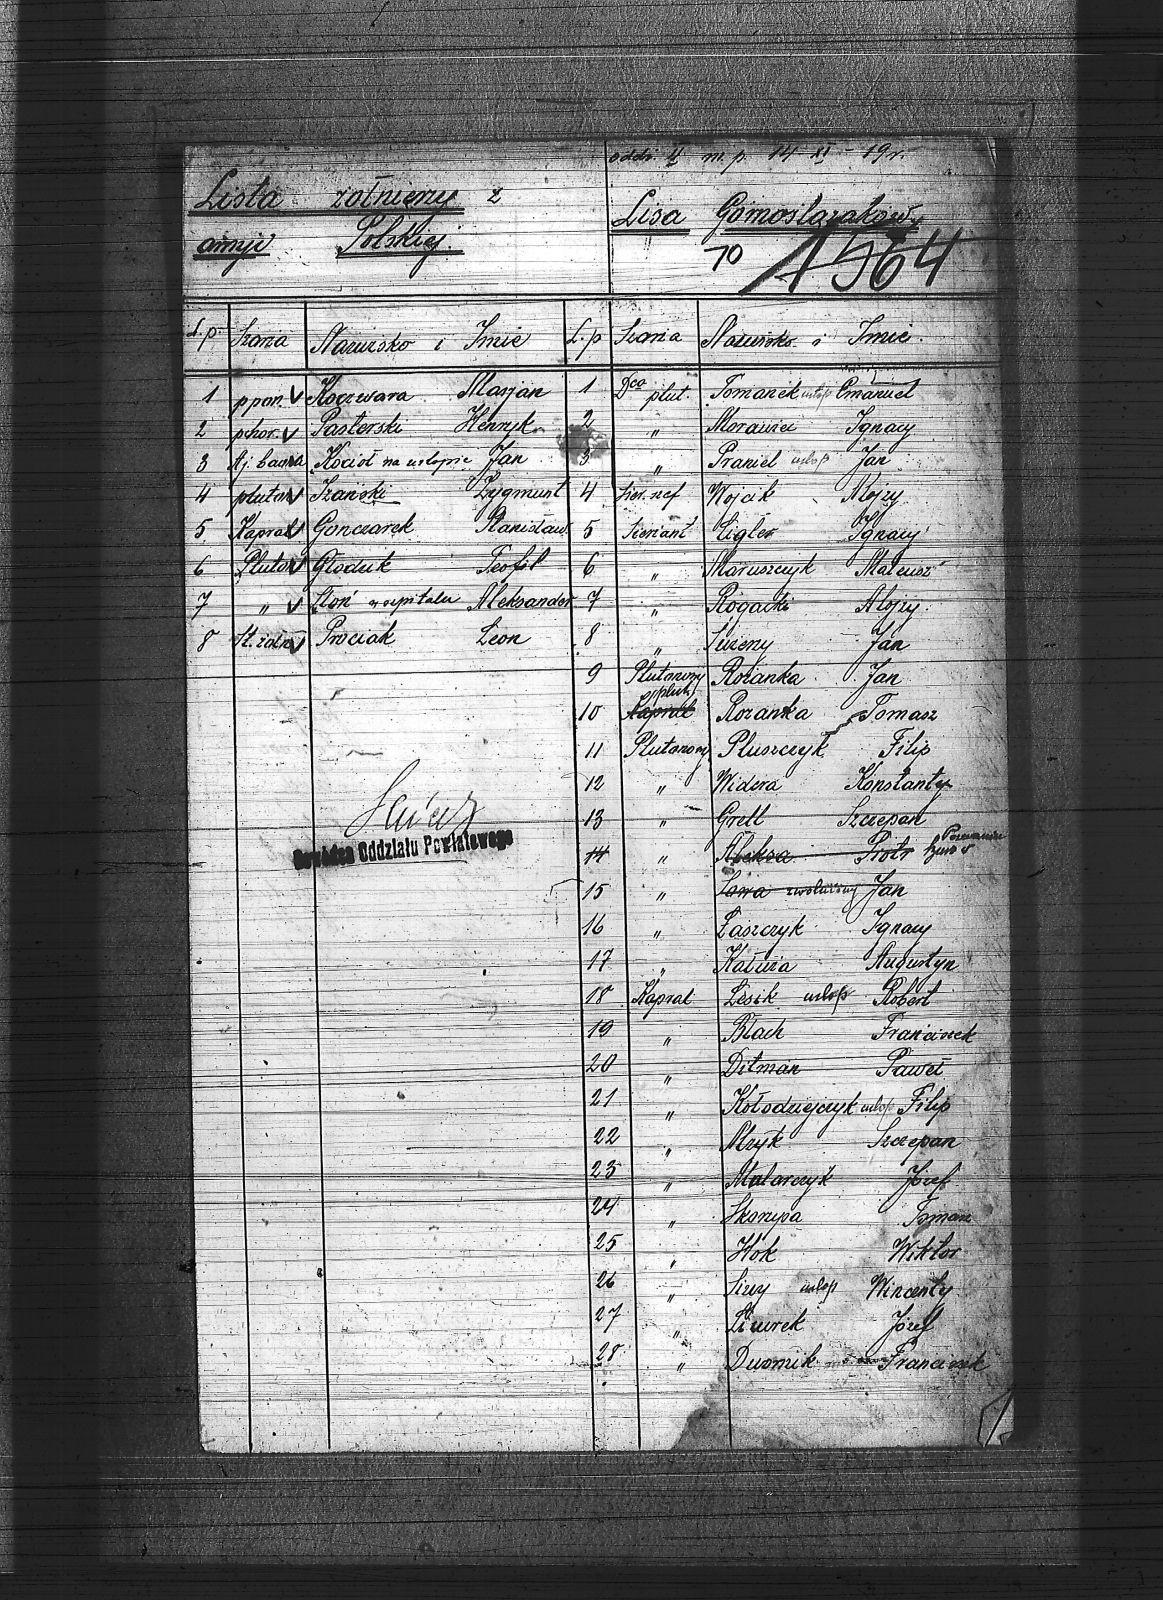 oddz. II m. p. 14 XI - 19 r.
Lista żołnierzy z
armji Polskiej.
Lisa Górnoslązaków
70 1564
L.p. Szarża Nazwisko i Imię
1 ppor. v Koczwara Marjan
2 pchor. v Pasterski Henryk
3 Kocioł na urlopie Jan
4 pluton v Szański Zygmunt
5 Kapral v Gonczarek Stanisław
6 Pluto v Głoduk Teofil
7 „ v Słoń w szpitalu Aleksander
8 St. żołn v Prociak Leon
Dowódca Oddziału Powiatowego
L.p Szarża Nazwisko i Imię.
1 Dca plut. Tomanek urlop Emanuel
2 „ Morawiec Ignacy
3 „ Praniel urlop Jan
4 Sier. szef Wojcik Alojzy
5 Sierżant Ligler Ignacy
6 „ Maruszczyk Mateusz
7 „ Rogacki Alojzy.
8 „ Jan
9 Plutonowy Rożanka Jan
10 Kapral plut. Rożanka Tomasz
11 Plutonowy Pluszczyk Filip
12 „ Widera Konstanty
13 „ Grell Szczepan
14 „ Aleksa Piotr
15 „ Sowa zwolniony Jan
16 „ Łaszczyk Ignacy
17 „ Kaluza Augustyn
18 Kapral Lesik urlop Robert
19 „ Błach Franciszek
20 „ Ditman Paweł
21 „ Kołodziejczyk urlop Filip
22 „ Mzyk Szczepan
23 „ Malarczyk Józef
24 „ Skorupa Tomasz
25 „ Hok Wiktor
26 „ urlop Wincenty
27 „ Józef
28 „ Franciszek